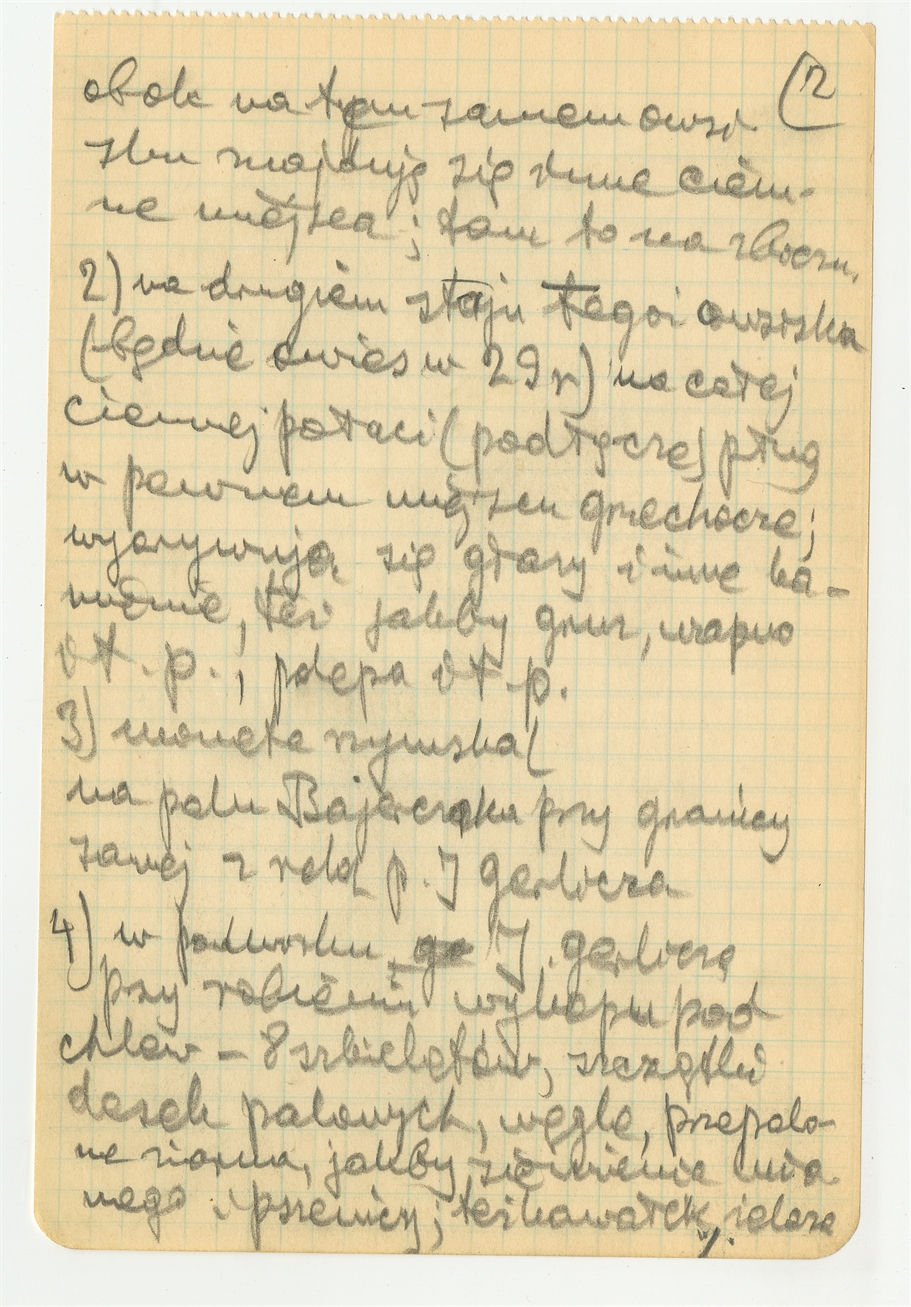 (2
obok na tym samem owsi-
sku znajdują się inne ciem-
ne miejsca; tam to na zboczu.
2) na drugiem staju tegoż owsiska
(będzie owies w 29 r) na całej
ciemnej połaci (podłużnej) pług
w pewnem miejscu grzechocze;
wyorywują się głazy i inne ka-
mienie, też jakby gruz, wapno
i t. p.; polepa i t. p.
3) moneta rzymska (
na polu Bajerczaka przy granicy
samej z rolą p. J Gerlicza
4) w podwórku J. Gerlicza
przy robieniu wykopu pod
chlew – 8 szkieletów, szczątki
desek palonych, węgle, przepalo-
ne ziarna, jakby siemienia lnia
nego i pszenicy; też kawałek żelaza